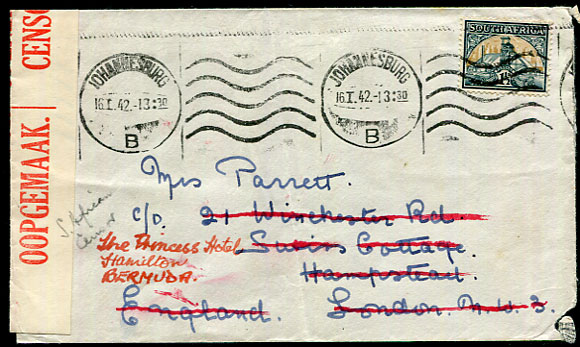 OOPGEMAAK. | CENSO
SOUTH AFRICA
JOHANNESBURG
16.I.42.-13:30
B
JOHANNESBURG
16.I.42.-13:30
B
S. African
Mrs Parrett.
c/o. 21 Winchester Rd
The Princess Hotel Swiss Cottage.
Hamilton Hampstead.
BERMUDA.
England. London. N.W.3.